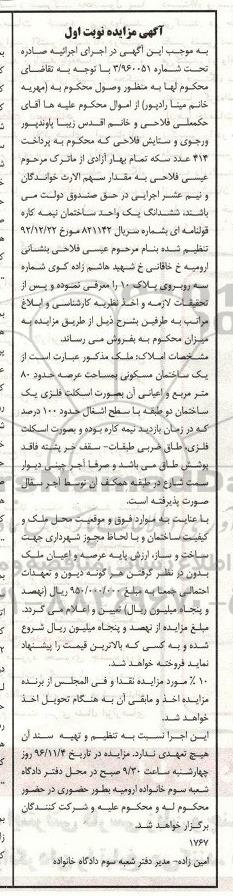 آگهی مزایده نوبت اول
به موجب این آگهی در اجرای اجرائیه صادره
تحت شماره ۳/۹۶۰۰۵۱ با توجه به تقاضای
محکوم لها به منظور وصول محکوم به (مهریه
خانم مینا رادپور) از اموال محکوم علیه ها آقای
حکمعلی فلاحی و خانم اقدس زیبا پاوندپور
ورجوی و ستایش فلاحی که محکوم به پرداخت
۴۱۴ عدد سکه تمام بهار آزادی از ماترک مرحوم
عیسی فلاحی به مقدار سهم الارث خواندگان
و نیم عشر اجرایی در حق صندوق دولت می
باشند، ششدانگ یک واحد ساختمان نیمه کاره
قولنامه ای بشماره سریال ۸۲۱۱۴۲ مورخ ۹۲/۱۲/۲۲
تنظیم شده بنام مرحوم عیسی فلاحی بنشانی
ارومیه خ خاقانی خ شهید هاشم زاده کوی شماره
سه روبروی پلاک ۱۰ را معرفی نموده و پس از
تحقیقات لازمه و اخذ نظریه کارشناسی و ابلاغ
مراتب به طرفین بشرح ذیل از طریق مزایده به
میزان محکوم به بفروش می رساند.
مشخصات املاک: ملک مذکور عبارت است از
یک ساختمان مسکونی بمساحت عرصه حدود ۸۰
متر مربع و اعیانی آن بصورت اسکلت فلزی یک
ساختمان دو طبقه با سطح اشغال حدود ۱۰۰ درصد
که در زمان بازدید نیمه کاره بوده و بصورت اسکلت
فلزی، طاق ضربی طبقات- سقف خر پشته فاقد
پوشش طاق می باشد و صرفا آجر چینی دیوار
سمت شارع در طبقه همکف آن توسط آجر سفال
صورت پذیرفته است.
با عنایت به موارد فوق و موقعیت محل ملک و
کیفیت ساختمان و با لحاظ مجوز شهرداری جهت
ساخت و ساز، ارزش پایه عرصه و اعیان ملک
بدون در نظر گرفتن هر گونه دیون و تعهدات
احتمالی جمعا به مبلغ ۹۵۰/۰۰۰/۰۰۰ ریال (نهصد
و پنجاه میلیون ریال) تعیین و اعلام می گردد.
مبلغ مزایده از نهصد و پنجاه میلیون ریال شروع
شده و به کسی که بالاترین قیمت را پیشنهاد
نماید فروخته خواهد شد.
۱۰ ٪ مورد مزایده نقدا و فی المجلس از برنده
مزایده اخذ و مابقی آن به هنگام تحویل اخذ
خواهد شد.
این اجرا نسبت به تنظیم و تهیه سند آن
هیچ تعهدی ندارد. مزایده در تاریخ ۹۶/۱۱/۴ روز
چهارشنبه ساعت ۹/۳۰ صبح در محل دفتر دادگاه
شعبه سوم خانواده ارومیه بطور حضوری در حضور
محکوم له و محکوم علیه و شرکت کنندگان
برگزار خواهد شد.
۱۷۶۷
امین زاده- مدیر دفتر شعبه سوم دادگاه خانواده